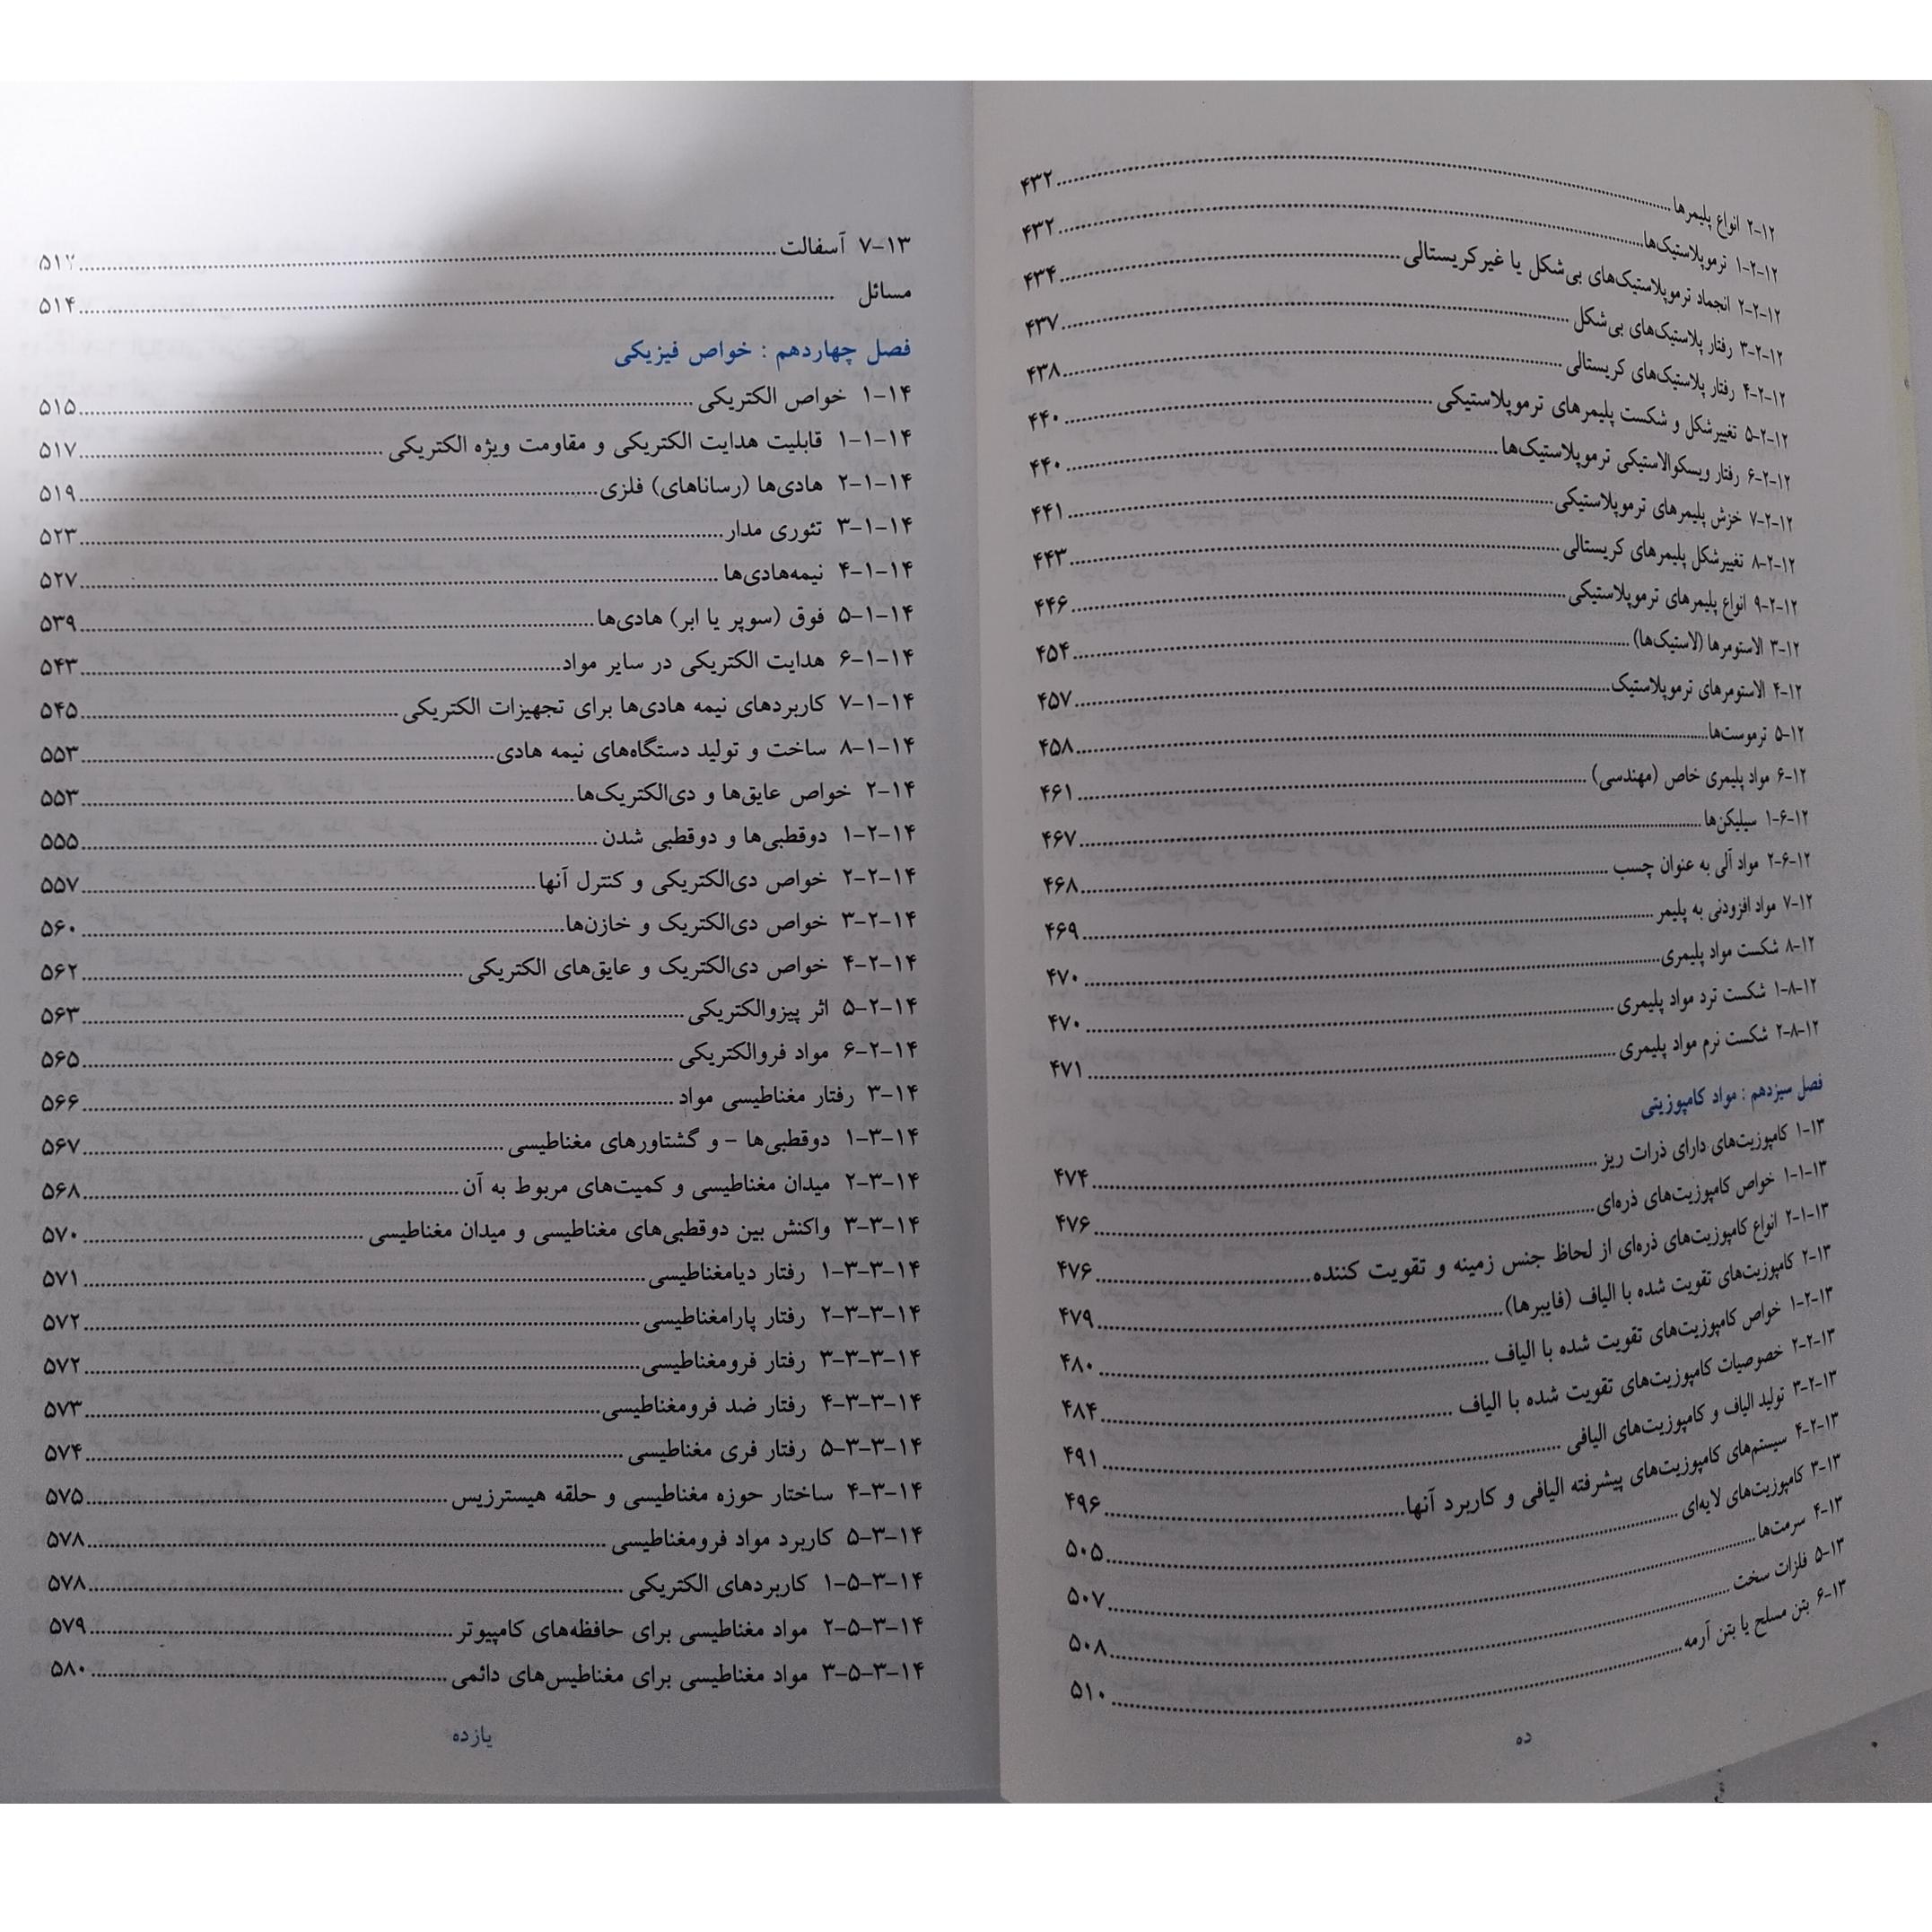 ۲-۱۲ انواع پلیمرها ۴۳۲
۱-۲-۱۲ ترموپلاستیک‌ها ۴۳۲
۲-۲-۱۲ انجماد ترموپلاستیک‌های بی‌شکل یا غیرکریستالی ۴۳۴
۳-۲-۱۲ رفتار پلاستیک‌های بی‌شکل ۴۳۷
۴-۲-۱۲ رفتار پلاستیک‌های کریستالی ۴۳۸
۵-۲-۱۲ تغییرشکل و شکست پلیمرهای ترموپلاستیکی ۴۴۰
۶-۲-۱۲ رفتار ویسکوالاستیکی ترموپلاستیک‌ها ۴۴۰
۷-۲-۱۲ خزش پلیمرهای ترموپلاستیکی ۴۴۱
۸-۲-۱۲ تغییرشکل پلیمرهای کریستالی ۴۴۳
۹-۲-۱۲ انواع پلیمرهای ترموپلاستیکی ۴۴۶
۳-۱۲ الاستومرها (لاستیک‌ها) ۴۵۴
۴-۱۲ الاستومرهای ترموپلاستیک ۴۵۷
۵-۱۲ ترموست‌ها ۴۵۸
۶-۱۲ مواد پلیمری خاص (مهندسی) ۴۶۱
۱-۶-۱۲ سیلیکن‌ها ۴۶۷
۲-۶-۱۲ مواد آلی به عنوان چسب ۴۶۸
۷-۱۲ مواد افزودنی به پلیمر ۴۶۹
۸-۱۲ شکست مواد پلیمری ۴۷۰
۱-۸-۱۲ شکست ترد مواد پلیمری ۴۷۰
۲-۸-۱۲ شکست نرم مواد پلیمری ۴۷۱
فصل سیزدهم : مواد کامپوزیتی
۱-۱۳ کامپوزیت‌های دارای ذرات ریز ۴۷۴
۱-۱-۱۳ خواص کامپوزیت‌های ذره‌ای ۴۷۶
۲-۱-۱۳ انواع کامپوزیت‌های ذره‌ای از لحاظ جنس زمینه و تقویت کننده ۴۷۶
۲-۱۳ کامپوزیت‌های تقویت شده با الیاف (فایبرها) ۴۷۹
۱-۲-۱۳ خواص کامپوزیت‌های تقویت شده با الیاف ۴۸۰
۲-۲-۱۳ خصوصیات کامپوزیت‌های تقویت شده با الیاف ۴۸۴
۳-۲-۱۳ تولید الیاف و کامپوزیت‌های الیافی ۴۹۱
۴-۲-۱۳ سیستم‌های کامپوزیت‌های پیشرفته الیافی و کاربرد آنها ۴۹۶
۳-۱۳ کامپوزیت‌های لایه‌ای ۵۰۵
۴-۱۳ سرمت‌ها ۵۰۷
۵-۱۳ فلزات سخت ۵۰۸
۶-۱۳ بتن مسلح یا بتن آرمه ۵۱۰
ده
۷-۱۳ آسفالت ۵۱۲
مسائل ۵۱۴
فصل چهاردهم : خواص فیزیکی
۱-۱۴ خواص الکتریکی ۵۱۵
۱-۱-۱۴ قابلیت هدایت الکتریکی و مقاومت ویژه الکتریکی ۵۱۷
۲-۱-۱۴ هادی‌ها (رساناهای) فلزی ۵۱۹
۳-۱-۱۴ تئوری مدار ۵۲۳
۴-۱-۱۴ نیمه‌هادی‌ها ۵۲۷
۵-۱-۱۴ فوق (سوپر یا ابر) هادی‌ها ۵۳۹
۶-۱-۱۴ هدایت الکتریکی در سایر مواد ۵۴۳
۷-۱-۱۴ کاربردهای نیمه هادی‌ها برای تجهیزات الکتریکی ۵۴۵
۸-۱-۱۴ ساخت و تولید دستگاه‌های نیمه هادی ۵۵۳
۲-۱۴ خواص عایق‌ها و دی‌الکتریک‌ها ۵۵۳
۱-۲-۱۴ دوقطبی‌ها و دوقطبی شدن ۵۵۵
۲-۲-۱۴ خواص دی‌الکتریکی و کنترل آنها ۵۵۷
۳-۲-۱۴ خواص دی‌الکتریک و خازن‌ها ۵۶۰
۴-۲-۱۴ خواص دی‌الکتریک و عایق‌های الکتریکی ۵۶۲
۵-۲-۱۴ اثر پیزوالکتریکی ۵۶۳
۶-۲-۱۴ مواد فروالکتریکی ۵۶۵
۳-۱۴ رفتار مغناطیسی مواد ۵۶۶
۱-۳-۱۴ دوقطبی‌ها - و گشتاورهای مغناطیسی ۵۶۷
۲-۳-۱۴ میدان مغناطیسی و کمیت‌های مربوط به آن ۵۶۸
۳-۳-۱۴ واکنش بین دوقطبی‌های مغناطیسی و میدان مغناطیسی ۵۷۰
۱-۳-۳-۱۴ رفتار دیامغناطیسی ۵۷۱
۲-۳-۳-۱۴ رفتار پارامغناطیسی ۵۷۲
۳-۳-۳-۱۴ رفتار فرومغناطیسی ۵۷۲
۴-۳-۳-۱۴ رفتار ضد فرومغناطیسی ۵۷۳
۵-۳-۳-۱۴ رفتار فری مغناطیسی ۵۷۴
۴-۳-۱۴ ساختار حوزه مغناطیسی و حلقه هیسترزیس ۵۷۵
۵-۳-۱۴ کاربرد مواد فرومغناطیسی ۵۷۸
۱-۵-۳-۱۴ کاربردهای الکتریکی ۵۷۸
۲-۵-۳-۱۴ مواد مغناطیسی برای حافظه‌های کامپیوتر ۵۷۹
۳-۵-۳-۱۴ مواد مغناطیسی برای مغناطیس‌های دائمی ۵۸۰
یازده